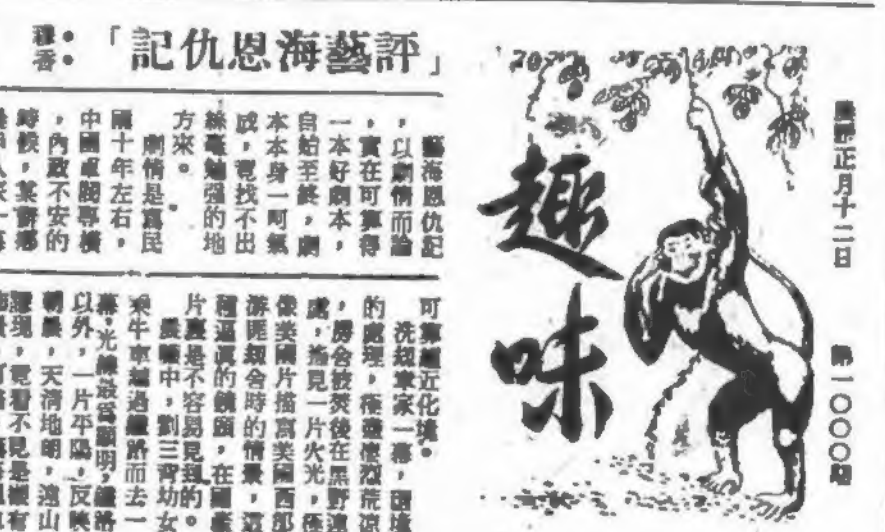 農曆正月十二日
第一〇〇〇期
趣味
「評藝海恩仇記」
香
藝海恩仇記
，以劇情而論
，實在可算得
一本好劇本，
自始至終，劇
本本身一呵氣
成，竟找不出
絲毫勉强的地
方來。
劇情是寫民
國十年左右，
中國軍閥專橫
，內政不安的
時候，某窮鄉
可算臻近化境。
洗劫韋家一幕，環境
的處理，極盡悽烈荒凉
，房舍被焚後在黑野遠
處，搖見一片火光，極
像美國片描寫美國西部
游匪劫舍時的情景，這
種逼真的鏡頭，在國產
片裏是不容易見到的。
晨曦中，劉三背幼女
乘牛車越過鐵路而去一
幕，光線最爲顯明，鐵路
以外，一片平陽，反映
朝晨，天清地明，遠山
隱現，竟看不見是有